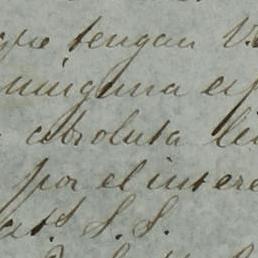 que tengan V.
ninguna esp
absoluta li
por el intere
at.ª S. S.